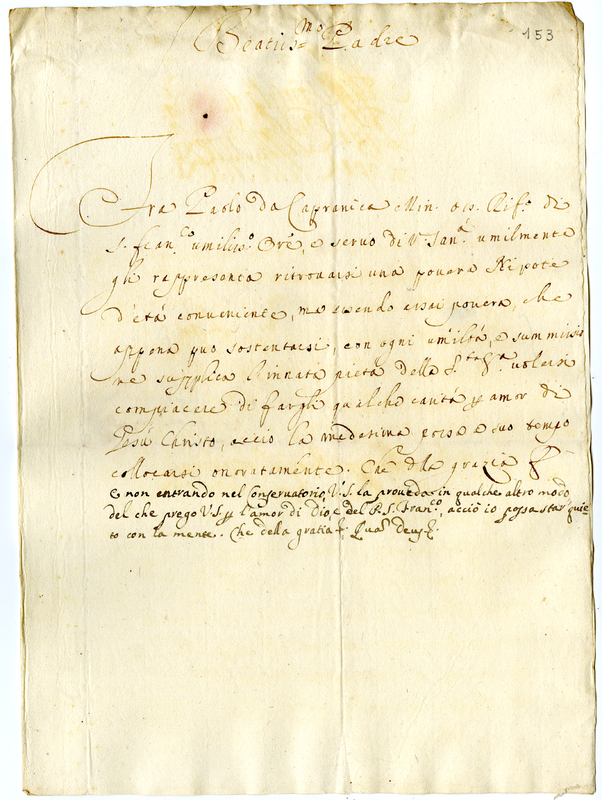 153
Beatiss.mo Padre
Fra Paolo da Capranica Min. oss. Rif.o di
S. Fran.co umiliss.o Ore, e servo di V. San.a umilmente
gli rappresenta ritrovarsi una povera Nipote
d'età conveniente, ma essendo assai povera, che
appena può sostentarsi, con ogni umiltà, e summissio
ne supplica l'innata pietà della S.tà V.a volersi
compiacere di fargli qualche carità p amor di
Giesù Christo, acciò la medesima possa a suo tempo
collocarsi onoratamente. Che d.lla grazia
e non entrando nel Conservatorio, V.S. la proveda in qualche altro modo
del che prego V.S. p l'amor di Dio, e del P.S. Fran.co, acciò io possa star quie=
to con la mente. Che della gratia &. Quas Deus &.